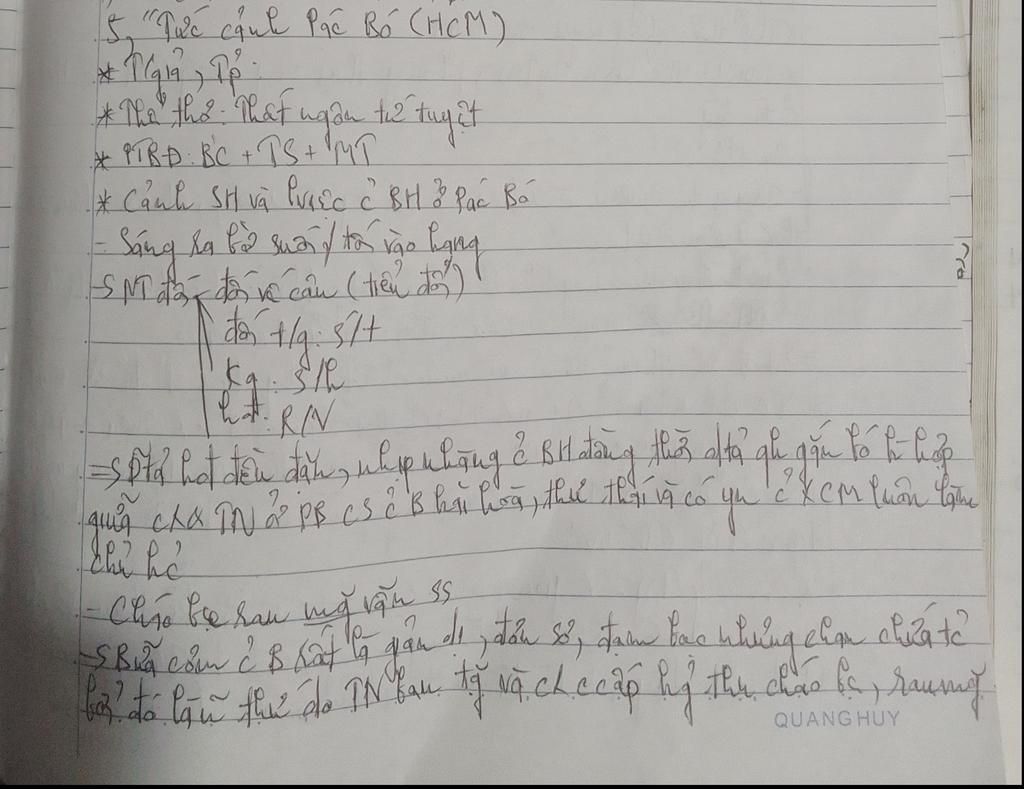 5, "Tức cảnh Pác Bó (HCM)
* T/giả, Tp:
* Thể thơ: Thất ngôn tứ tuyệt
* PTBĐ: BC + TS + MT
* Cảnh SH và lviệc ở BH ở Pác Bó
- Sáng ra bờ suối / tối vào hang
đối - đối vế câu (tiểu đối)
đối t/g: S/t
kg: S/h
hđ: R/V
hđ đều đặn, nhịp nhàng BH đồng thời gắn bó h-hợp
giữa TN ở PB CS B hài hoà, thư thái và có yn KCM luôn làm
chủ hc
- Cháo bẹ rau mg vẫn ss
Bữa cơm B rất là giản dị, đơn sơ, đạm bạc nhưng chan chứa tc
bởi đó là ~ thứ do TN ban tặg và ccấp cháo bẹ, rau mg
QUANG HUY